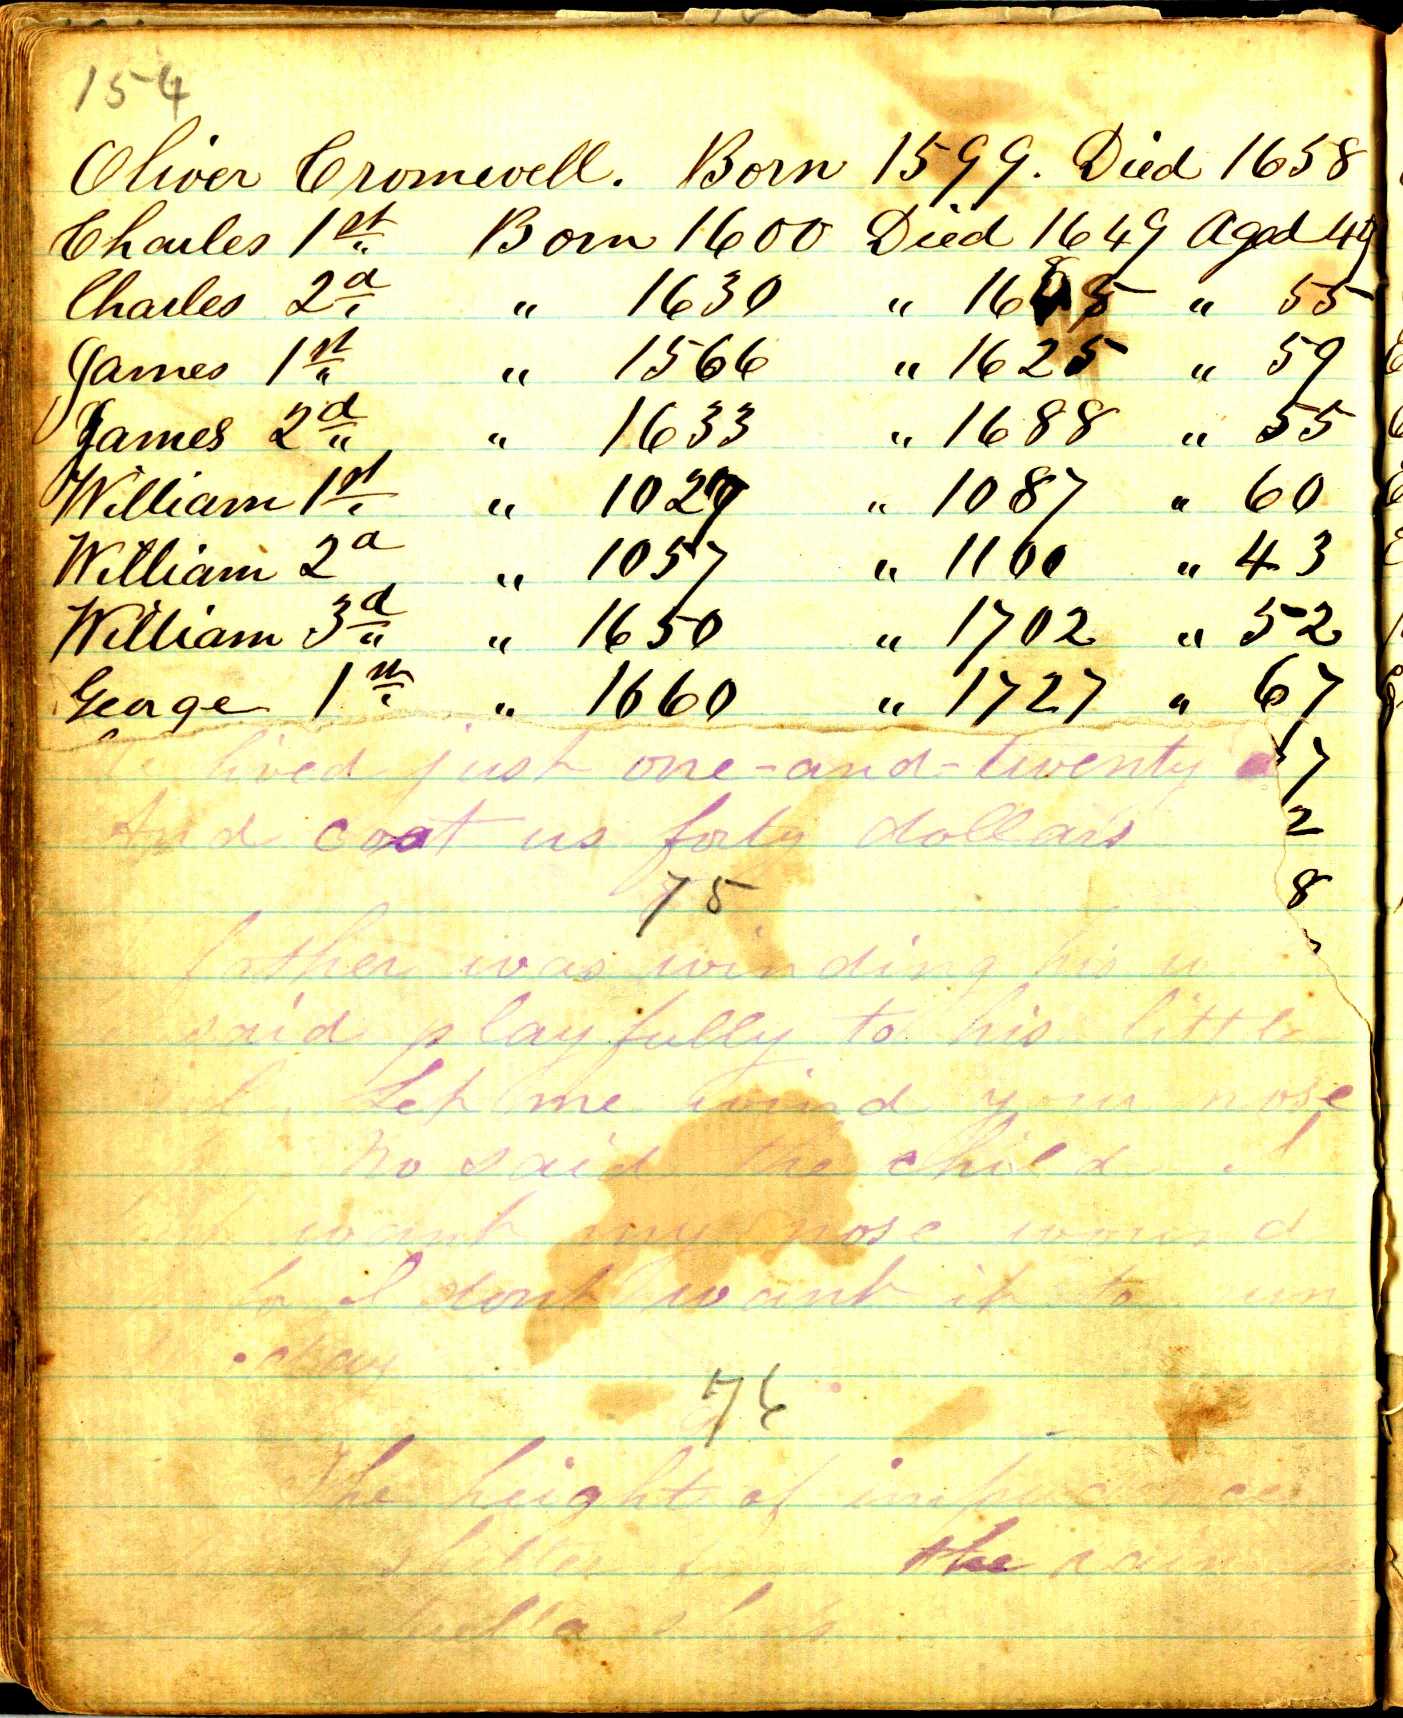 154
Oliver Cromwell. Born 1599. Died 1658
Charles 1st Born 1600 Died 1649 Aged 49
Charles 2d " 1630 " 1685 " 55
James 1st " 1566 " 1625 " 59
James 2d " 1633 " 1688 " 55
William 1st " 1027 " 1087 " 60
William 2d " 1057 " 1100 " 43
William 3d " 1650 " 1702 " 52
George 1st " 1660 " 1727 " 67
lived just one-and-twenty 7
And cost us forty dollars 2
75 8
father was winding his
said playfully to his little
Let me wind your nose
No said the child I
want my nose wound
for I dont want it to run
away
76
The height of impudence
shelter from the rain
umbrella shop